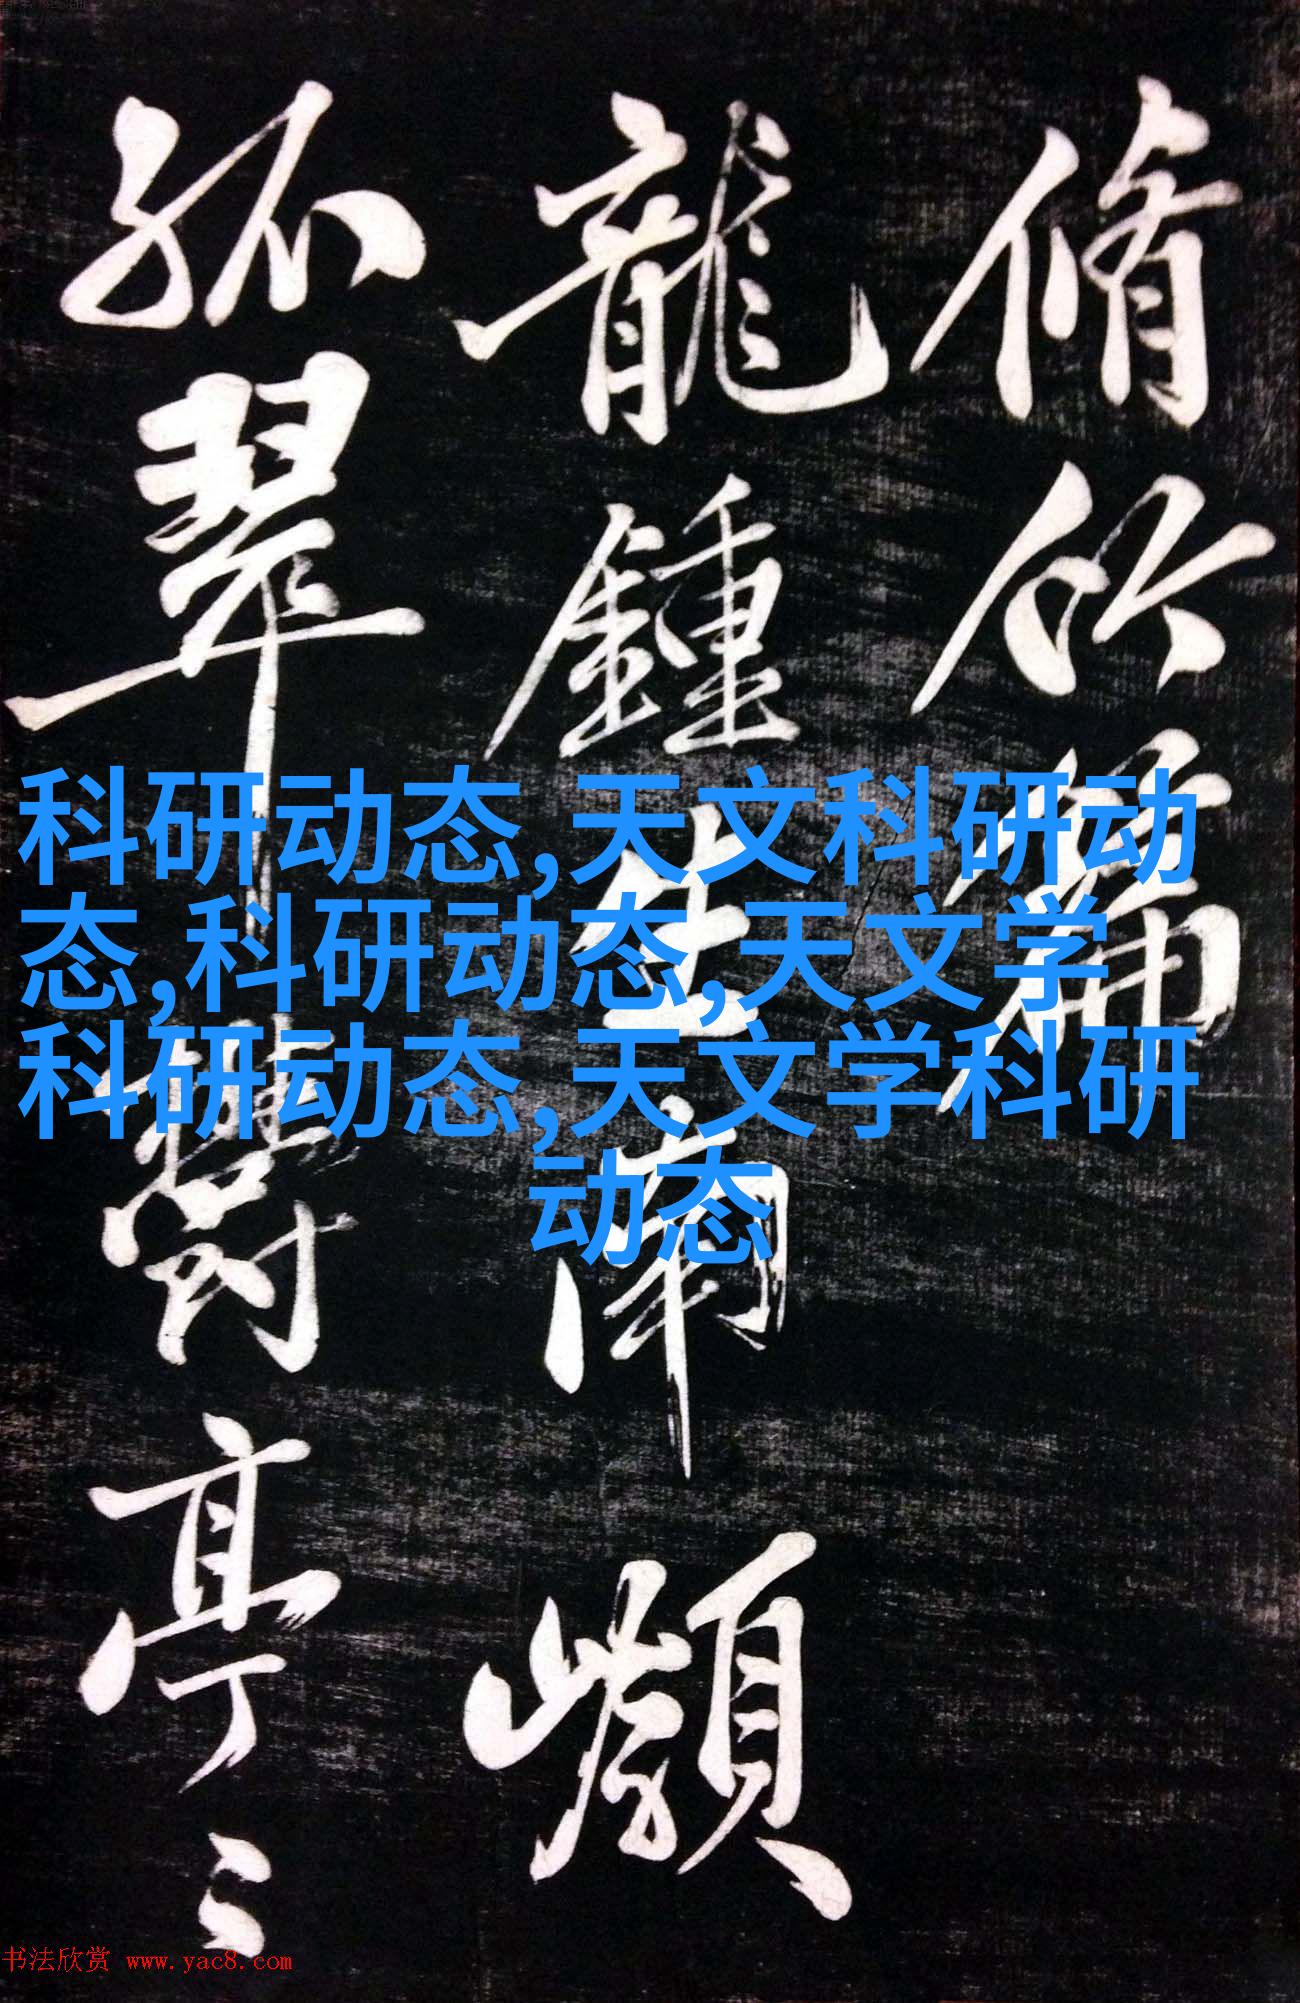 脩竹篇
龍鍾生南
孤翠鬱亭〻
科研动态,天文科研动
态,科研动态,天文学
科研动态,天文学科研
动态
书法欣赏 www.yac8.com